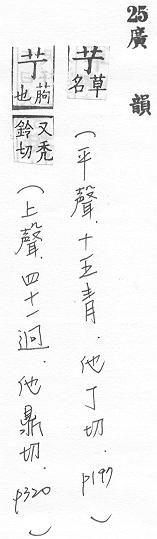 25廣韻
艼草名（平聲．十五青．他丁切．p197）
艼葋也又禿鈴切（上聲．四十一迥．他鼎切．p320）